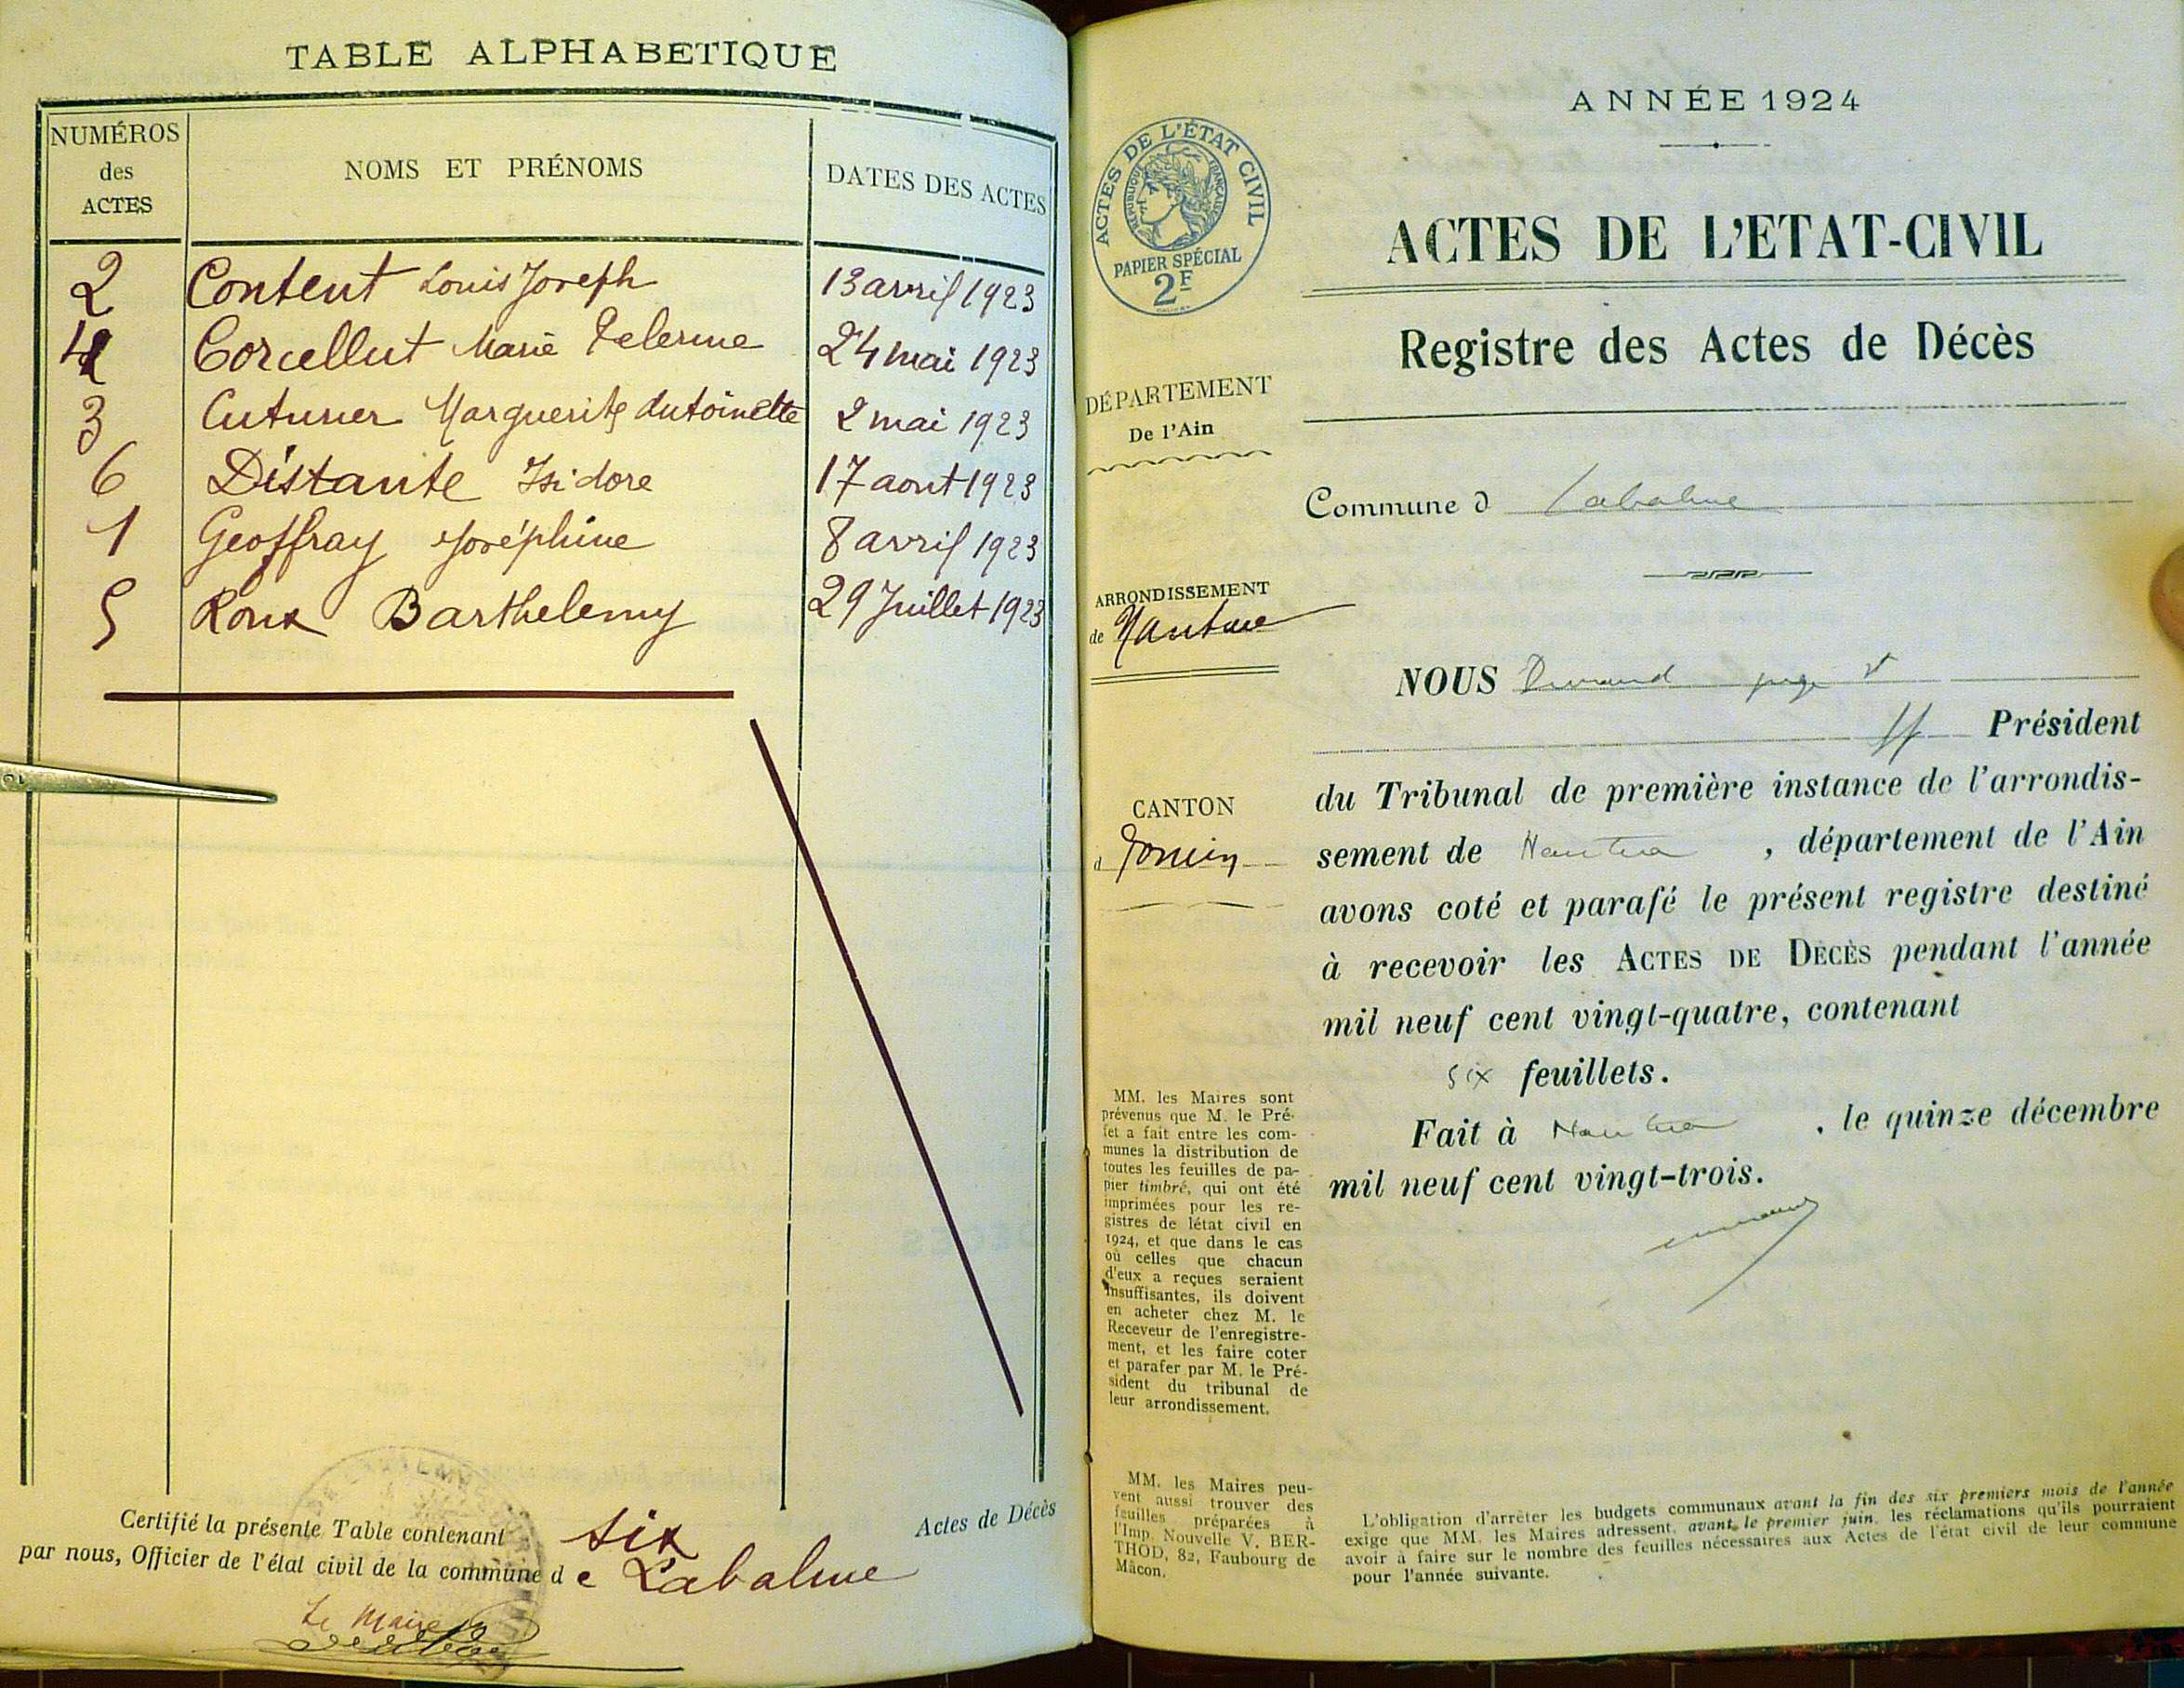 TABLE ALPHABETIQUE
NUMÉROS des ACTES
NOMS ET PRÉNOMS
DATES DES ACTES
2 Content Louis Joseph 13 avril 1923
4 Corcellut Marie Pelerine 24 mai 1923
3 Cuturier Marguerite Antoinette 2 mai 1923
6 Distante Isidore 17 aout 1923
1 Geoffray Joséphine 8 avril 1923
5 Roux Barthelemy 29 Juillet 1923
Certifié la présente Table contenant six
par nous, Officier de l'état civil de la commune de Labalme
Actes de Décès
Le Maire
ANNÉE 1924
ACTES DE L'ÉTAT CIVIL
RÉPUBLIQUE FRANÇAISE
PAPIER SPÉCIAL
2F
ACTES DE L'ETAT-CIVIL
Registre des Actes de Décès
DÉPARTEMENT
De l'Ain
Commune d Labalme
ARRONDISSEMENT
de Nantua
NOUS Durand juge
Président
CANTON
d Poncin
du Tribunal de première instance de l'arrondis-
sement de Nantua, département de l'Ain
avons coté et parafé le présent registre destiné
à recevoir les ACTES DE DÉCÈS pendant l'année
mil neuf cent vingt-quatre, contenant
six feuillets.
Fait à Nantua, le quinze décembre
mil neuf cent vingt-trois.
MM. les Maires sont
prévenus que M. le Pré-
fet a fait entre les com-
munes la distribution de
toutes les feuilles de pa-
pier timbré, qui ont été
imprimées pour les re-
gistres de létat civil en
1924, et que dans le cas
où celles que chacun
d'eux a reçues seraient
insuffisantes, ils doivent
en acheter chez M. le
Receveur de l'enregistre-
ment, et les faire coter
et parafer par M. le Pré-
sident du tribunal de
leur arrondissement.
MM. les Maires peu-
vent aussi trouver des
feuilles préparées à
l'Imp. Nouvelle V. BER-
THOD, 82, Faubourg de
Mâcon.
L'obligation d'arrêter les budgets communaux avant la fin des six premiers mois de l'année
exige que MM. les Maires adressent, avant le premier juin, les réclamations qu'ils pourraient
avoir à faire sur le nombre des feuilles nécessaires aux Actes de l'état civil de leur commune
pour l'année suivante.